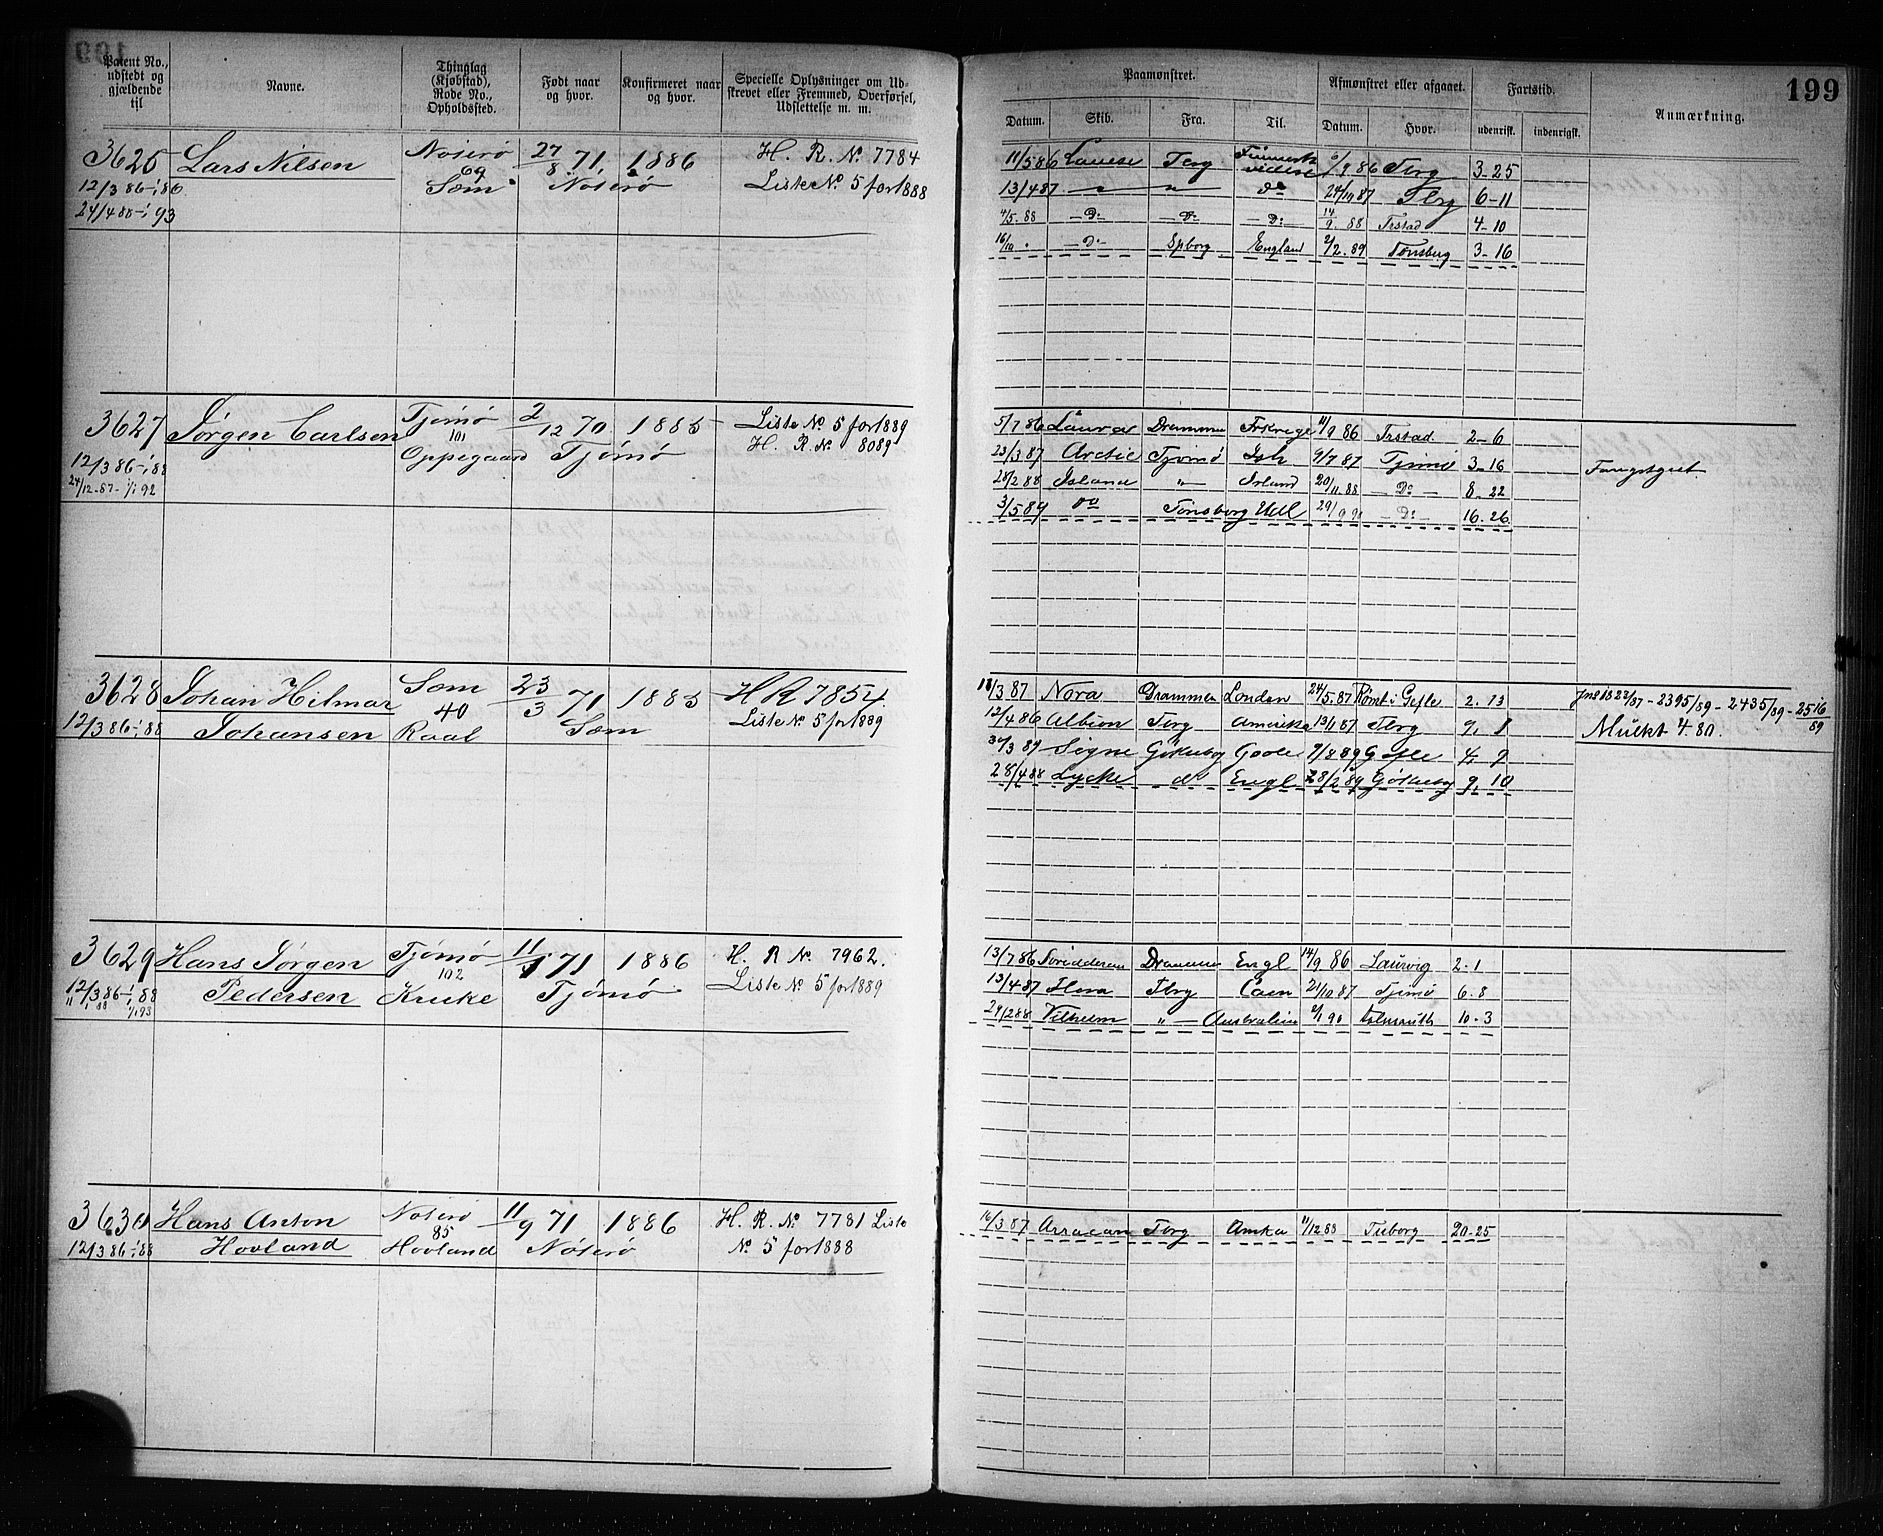 199
Patent No., udstedt og gjældende til
Navne.
Thinglag (Kjøbstad), Rode No., Opholdssted.
Født naar og hvor.
Konfirmeret naar og hvor.
Specielle Oplysninger om Udskrevet eller Fremmed, Overførsel, Udslettelse m. m.
Paamønstret.
Afmønstret eller afgaaet.
Fartstid.
Anmærkning.
Datum. Skib. Fra. Til. Datum. Hvor. udenrisk. indenrigsk.
3625 Lars Nilsen Nøterø 69 Sæm 27/8 71, Nøterø 1886 H. R. No 7784
12/3 86-1/1 86 Liste No 5 for 1888
24/4 88-1/1 93
11/5 86 Tbrg 86 Tbrg 3-25
13/4 87 " " do 24/10 87 Tbrg 6-11
4/5. 88 -Do- -Do- -Do- 14/9. 88 Frstad 4-10
16/10 " -Do- Spborg England 2/2. 89 Tønsberg 3-16
3627 Jørgen Carlsen Tjømø 101 Oppegaard 2/12 70 Tjømø 1885 Liste No 5 for 1889
12/3 86-1/1 88 H. R. No 8089
24/12-87-1/1 92
5/7 86 Laura Dramme Frkrige 11/9 86 Frstad. 2-6
23/3 87 Arctic Tjømø Ish 9/7 87 Tjømø 3-16 Fangstgaet
28/2 88 Island " 20/11. 88 -Do- 8-22
3/5 89 do Tønsberg Udl 29/9 90 -Do- 16-26
3628 Johan Hilmar Johansen Sæm 40 Raal 23/3 71 Sæm 1885 H R 7854.
12/3 86-1/1 88 Liste No 5 for 1889
11/3 87 Nora Drammen London 24/5. 87 Rømt i Gefle 2. 13 - 2395/89 - 2435/89 - 2516/89
12/4 86 Albion Tbrg Amerika 13/1 87 Tbrg 9, 8 Mulkt 4-80.
3/3 89 Signe Göteborg Goole 7/8 89 Gefle 4, 9
28/4 88 Lycke do Engl 28/2 89 Göteborg 9, 10
3629 Hans Jørgen Pedersen Tjømø 102 Kruke 11/1 71 Tjømø 1886 H. R No 7962.
12/3 86-1/1 88 Liste No 5 for 1889
13/7 86 Drammen Engl 14/9 86 Laurvig 2-1
13/4 87 Flora Tbrg Caen 21/10 87 Tjømø 6-8
29/2 88 Vilhelm " Australien 90 Falmouth 10-3
3630 Hans Anton Hovland Nøterø 85 Hovland 11/9 71 Nøterø 1886 H. R. No 7781 Liste
12/3 86-1/1 88 No 5 for 1888
16/3 87 Arracan Tbrg Amka 11/12 88 20-25